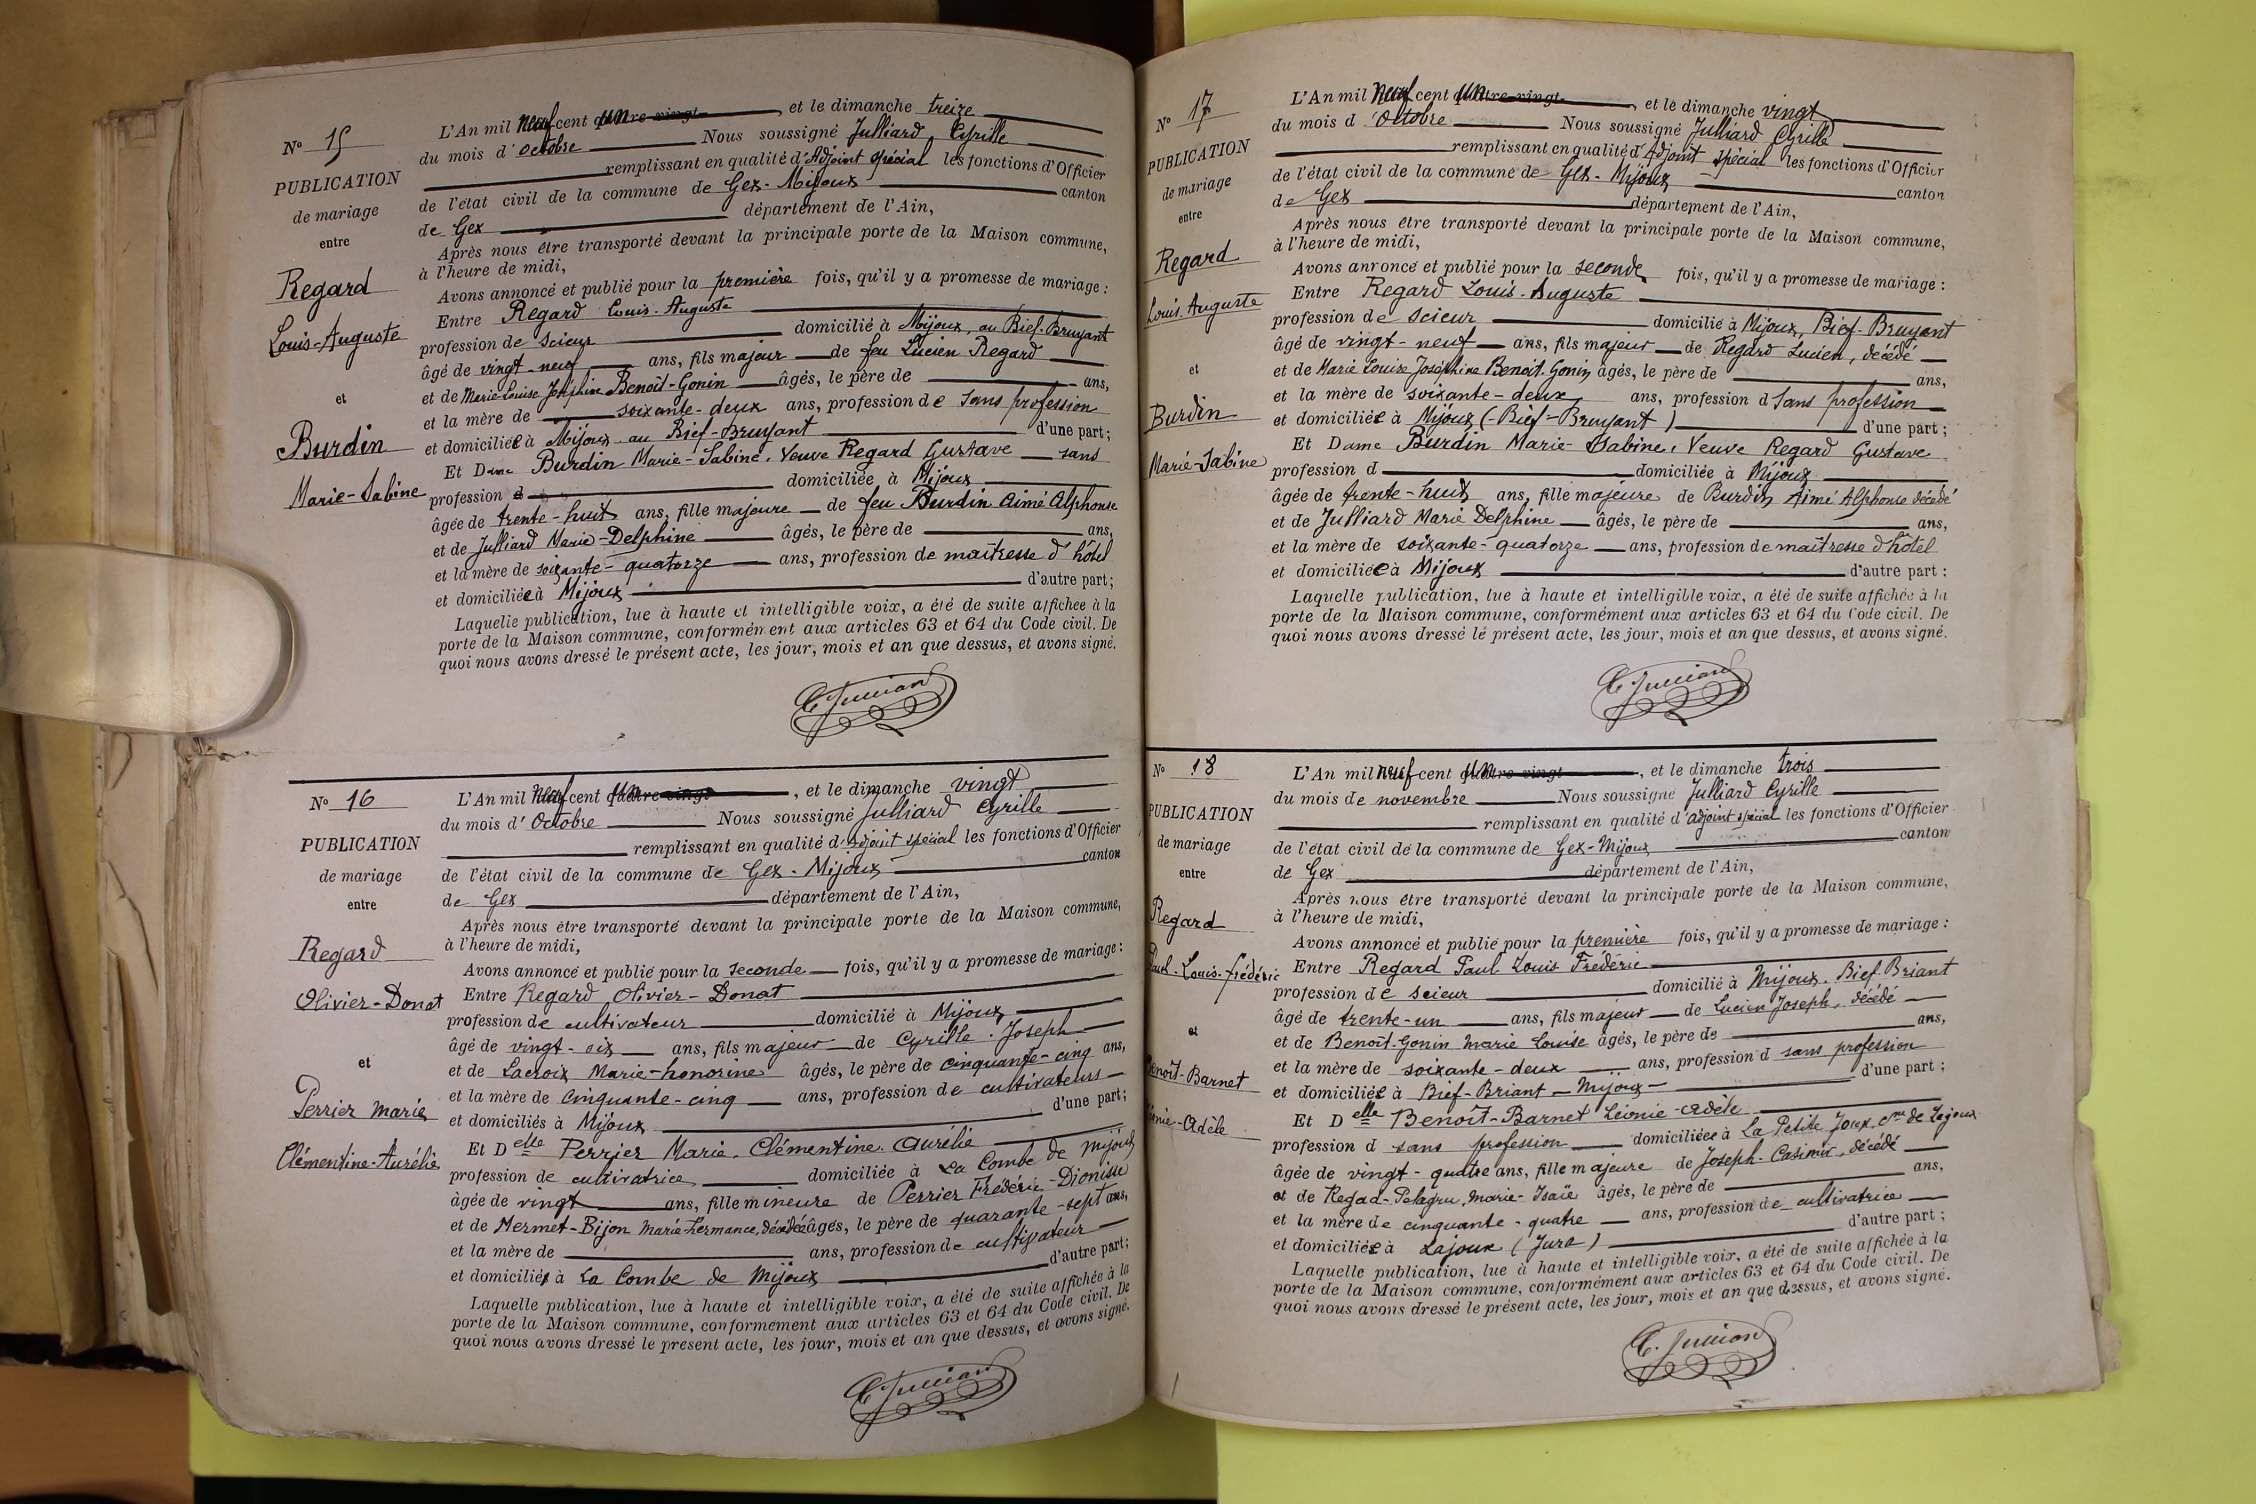 N° 15
PUBLICATION
de mariage
entre
Regard
Louis-Auguste
et
Burdin
Marie-Sabine
L'An mil neuf cent un quatre-vingt , et le dimanche treize
du mois d'octobre Nous soussigné Julliard Cyrille
remplissant en qualité d'Adjoint spécial les fonctions d'Officier
de l'état civil de la commune de Gex-Mijoux canton
de Gex département de l'Ain,
Après nous être transporté devant la principale porte de la Maison commune,
à l'heure de midi,
Avons annoncé et publié pour la première fois, qu'il y a promesse de mariage :
Entre Regard Louis-Auguste
profession de scieur domicilié à Mijoux, au Bief-Bruyant
âgé de vingt-neuf ans, fils majeur de feu Lucien Regard
et de Marie Louise Joséphine Benoit-Gonin âgés, le père de ans,
et la mère de soixante-deux ans, profession de sans profession
et domiciliée à Mijoux au Bief-Bruyant d'une part ;
Et Dame Burdin Marie-Sabine, Veuve Regard Gustave sans
profession d domiciliée à Mijoux
âgée de trente-huit ans, fille majeure de feu Burdin Aimé Alphonse
et de Julliard Marie-Delphine âgés, le père de ans,
et la mère de soixante-quatorze ans, profession de maîtresse d'hôtel
et domiciliée à Mijoux d'autre part ;
Laquelle publication, lue à haute et intelligible voix, a été de suite affichée à la
porte de la Maison commune, conformément aux articles 63 et 64 du Code civil. De
quoi nous avons dressé le présent acte, les jour, mois et an que dessus, et avons signé.
C. Julliard
N° 16
PUBLICATION
de mariage
entre
Regard
Olivier-Donat
et
Perrier Marie
Clémentine-Aurélie
L'An mil neuf cent un quatre-vingt , et le dimanche vingt
du mois d'Octobre Nous soussigné Julliard Cyrille
remplissant en qualité d'adjoint spécial les fonctions d'Officier
de l'état civil de la commune de Gex-Mijoux canton
de Gex département de l'Ain,
Après nous être transporté devant la principale porte de la Maison commune,
à l'heure de midi,
Avons annoncé et publié pour la seconde fois, qu'il y a promesse de mariage :
Entre Regard Olivier-Donat
profession de cultivateur domicilié à Mijoux
âgé de vingt-six ans, fils majeur de Cyrille-Joseph
et de Lacroix Marie-honorine âgés, le père de cinquante-cinq ans,
et la mère de cinquante-cinq ans, profession de cultivateurs
et domiciliés à Mijoux d'une part ;
Et Delle Perrier Marie-Clémentine-Aurélie
profession de cultivatrice domiciliée à La Combe de Mijoux
âgée de vingt ans, fille mineure de Perrier Frédéric-Dionisse
et de Mermet-Bijon Marie-hermance, décédée âgés, le père de quarante-sept ans,
et la mère de ans, profession de cultivateur
et domicilié à La Combe de Mijoux d'autre part ;
Laquelle publication, lue à haute et intelligible voix, a été de suite affichée à la
porte de la Maison commune, conformément aux articles 63 et 64 du Code civil. De
quoi nous avons dressé le present acte, les jour, mois et an que dessus, et avons signé.
C. Julliard
N° 17
PUBLICATION
de mariage
entre
Regard
Louis-Auguste
et
Burdin
Marie-Sabine
L'An mil neuf cent un quatre-vingt , et le dimanche vingt
du mois d'Octobre Nous soussigné Julliard Cyrille
remplissant en qualité d'Adjoint spécial les fonctions d'Officier
de l'état civil de la commune de Gex-Mijoux canton
de Gex département de l'Ain,
Après nous être transporté devant la principale porte de la Maison commune,
à l'heure de midi,
Avons annoncé et publié pour la seconde fois, qu'il y a promesse de mariage :
Entre Regard Louis-Auguste
profession de scieur domicilié à Mijoux, Bief-Bruyant
âgé de vingt-neuf ans, fils majeur de Regard Lucien, décédé
et de Marie Louise Joséphine Benoit-Gonin âgés, le père de ans,
et la mère de soixante-deux ans, profession d sans profession
et domiciliée à Mijoux (-Bief-Bruyant) d'une part ;
Et Dame Burdin Marie-Sabine, Veuve Regard Gustave
profession d domiciliée à Mijoux
âgée de trente-huit ans, fille majeure de Burdin Aimé Alphonse décédé
et de Julliard Marie Delphine âgés, le père de ans,
et la mère de soixante-quatorze ans, profession de maîtresse d'hôtel
et domiciliée à Mijoux d'autre part :
Laquelle publication, lue à haute et intelligible voix, a été de suite affichée à la
porte de la Maison commune, conformément aux articles 63 et 64 du Code civil. De
quoi nous avons dressé le présent acte, les jour, mois et an que dessus, et avons signé.
C. Julliard
N° 18
PUBLICATION
de mariage
entre
Regard
Paul-Louis-frédéric
et
Benoît-Barnet
Léonie-Adèle
L'An mil neuf cent un quatre-vingt , et le dimanche trois
du mois de novembre Nous soussigné Julliard Cyrille
remplissant en qualité d'adjoint spécial les fonctions d'Officier
de l'état civil de la commune de Gex-Mijoux canton
de Gex département de l'Ain,
Après nous être transporté devant la principale porte de la Maison commune,
à l'heure de midi,
Avons annoncé et publié pour la première fois, qu'il y a promesse de mariage :
Entre Regard Paul Louis Frédéric
profession de scieur domicilié à Mijoux. Bief-Briant
âgé de trente-un ans, fils majeur de Lucien Joseph, décédé
et de Benoît-Gonin Marie Louise âgés, le père de ans,
et la mère de soixante-deux ans, profession d sans profession
et domiciliée à Bief-Briant - Mijoux d'une part ;
Et Delle Benoît-Barnet Léonie-Adèle
profession d sans profession domiciliée à La Petite Joux cne de Lajoux
âgée de vingt-quatre ans, fille majeure de Joseph-Casimir, décédé
et de Regad-Pelagru, Marie-Isaïe âgés, le père de ans,
et la mère de cinquante-quatre ans, profession de cultivatrice
et domiciliée à Lajoux (Jura) d'autre part ;
Laquelle publication, lue à haute et intelligible voix, a été de suite affichée à la
porte de la Maison commune, conformément aux articles 63 et 64 du Code civil. De
quoi nous avons dressé le présent acte, les jour, mois et an que dessus, et avons signé.
C. Julliard